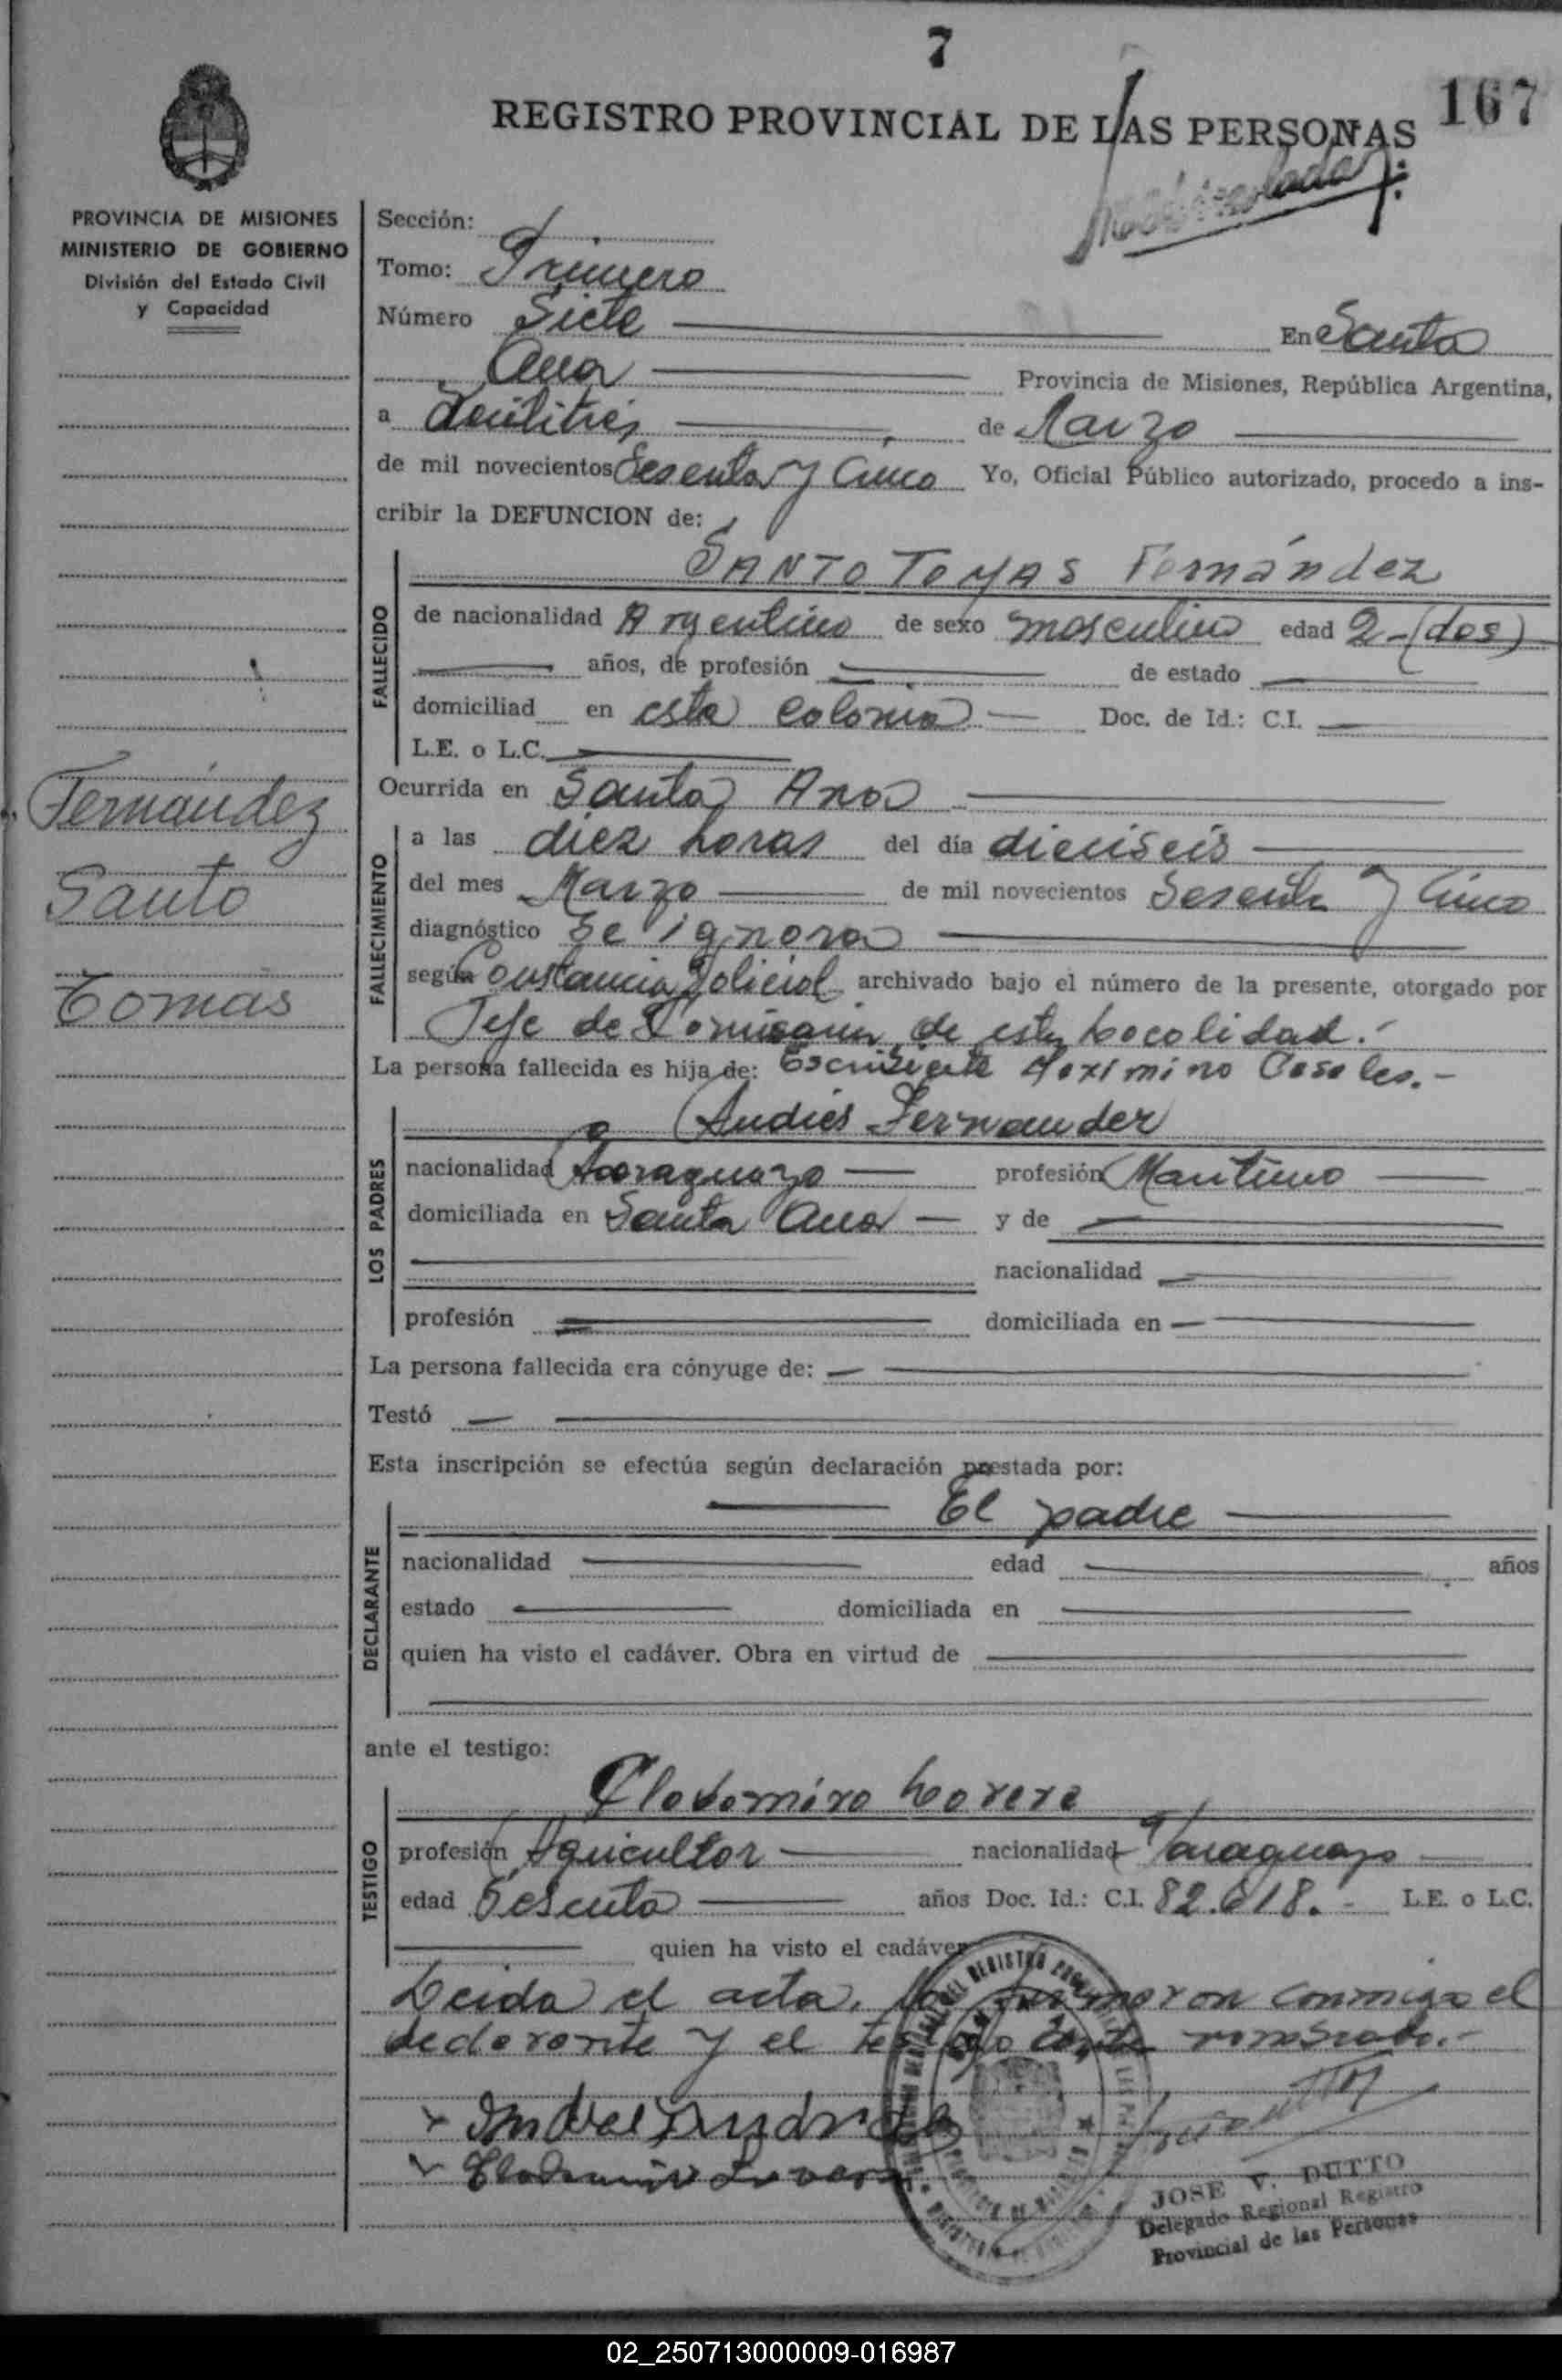 7
167
REGISTRO PROVINCIAL DE LAS PERSONAS
PROVINCIA DE MISIONES
MINISTERIO DE GOBIERNO
División del Estado Civil
y Capacidad
Sección:
Tomo: Primero
Número Siete En Santa
Ana Provincia de Misiones, República Argentina,
a de Marzo
de mil novecientos Sesenta y Cinco Yo, Oficial Público autorizado, procedo a ins-
cribir la DEFUNCION de:
FALLECIDO
SANTO TOMAS Fernández
de nacionalidad Argentino de sexo masculino edad 2-(dos)
años, de profesión de estado
domiciliad en esta Colonia Doc. de Id.: C.I.
L.E. o L.C.
Fernández
Santo
Tomas
Ocurrida en Santa Ana
FALLECIMIENTO
a las diez horas del día dieciseis
del mes Marzo de mil novecientos Sesenta y Cinco
diagnóstico Se ignora
según Constancia Policial archivado bajo el número de la presente, otorgado por
Jefe de Comisaria de esta Localidad.
La persona fallecida es hija de: Escribiente Maximino Casales.-
LOS PADRES
Andrés Fernandez
nacionalidad Paraguayo profesión Maritimo
domiciliada en Santa Ana y de
nacionalidad
profesión domiciliada en
La persona fallecida era cónyuge de:
Testó
Esta inscripción se efectúa según declaración prestada por:
DECLARANTE
El padre
nacionalidad edad años
estado domiciliada en
quien ha visto el cadáver. Obra en virtud de
ante el testigo:
TESTIGO
Clodomiro Lovera
profesión Agricultor nacionalidad Paraguayo
edad Sesenta años Doc. Id.: C.I. 82.618.- L.E. o L.C.
quien ha visto el cadáver
Leida el acta, la firmaron conmigo el
declarante y el testigo ante nombrado.-
JOSE V. DUTTO
Delegado Regional Registro
Provincial de las Personas
02_250713000009-016987